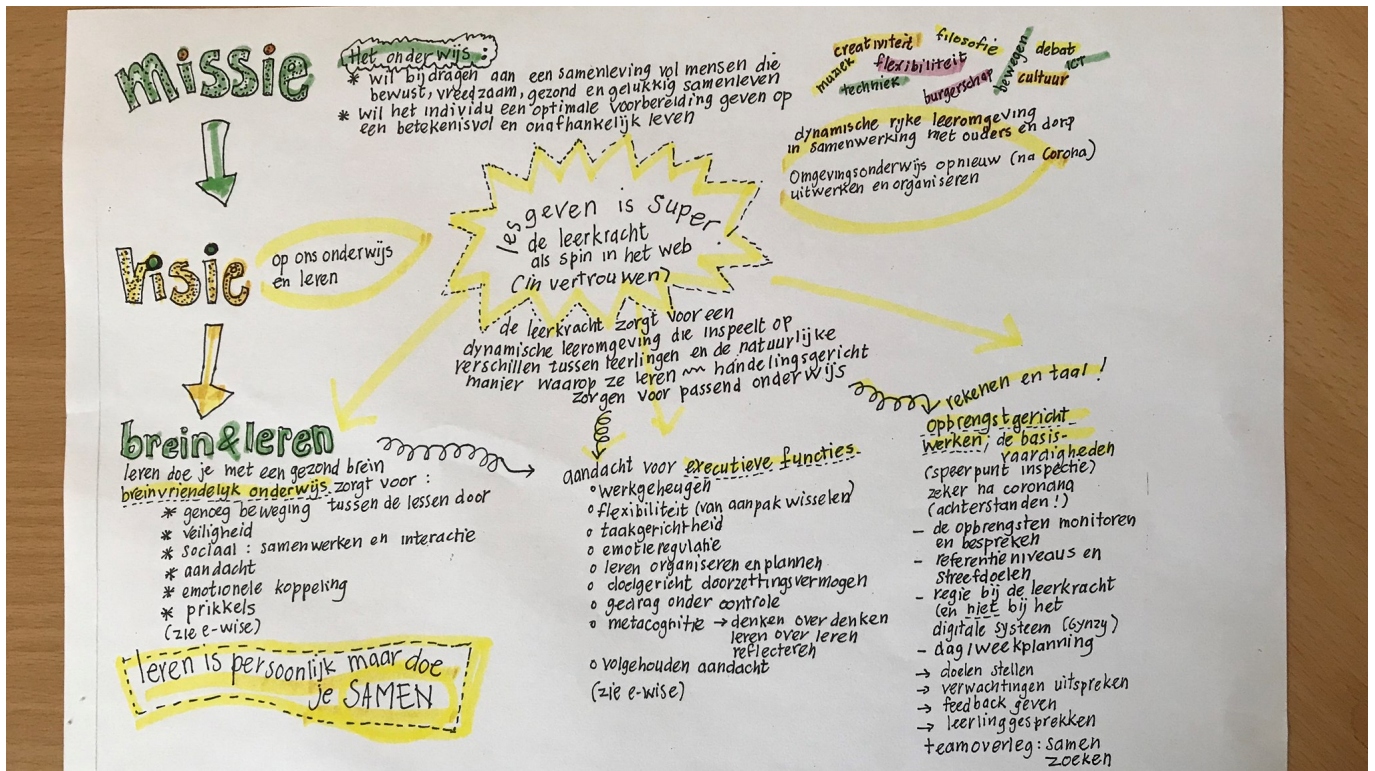 missie
Het onderwijs:
* wil bijdragen aan een samenleving vol mensen die
bewust, vreedzaam, gezond en gelukkig samenleven
* wil het individu een optimale voorbereiding geven op
een betekenisvol en onafhankelijk leven
creativiteit
filosofie
bewegen
debat
muziek
flexibiliteit
ICT
techniek
burgerschap
cultuur
dynamische rijke leeromgeving
in samenwerking met ouders en dorp
Omgevingsonderwijs opnieuw (na Corona)
uitwerken en organiseren
visie
op ons onderwijs
en leren
lesgeven is super
de leerkracht
als spin in het web
(in vertrouwen)
de leerkracht zorgt voor een
dynamische leeromgeving die inspeelt op
verschillen tussen leerlingen en de natuurlijke
manier waarop ze leren ~ handelingsgericht
zorgen voor passend onderwijs
brein & leren
leren doe je met een gezond brein
breinvriendelijk onderwijs zorgt voor :
* genoeg beweging tussen de lessen door
* veiligheid
* sociaal : samenwerken en interactie
* aandacht
* emotionele koppeling
* prikkels
(zie e-wise)
leren is persoonlijk maar doe
je SAMEN
aandacht voor executieve functies.
o werkgeheugen
o flexibiliteit (van aanpak wisselen)
o taakgerichtheid
o emotieregulatie
o leren organiseren en plannen
o doelgericht doorzettingsvermogen
o gedrag onder controle
o metacognitie → denken over denken
leren over leren
reflecteren
o volgehouden aandacht
(zie e-wise)
rekenen en taal!
opbrengstgericht
werken; de basis-
vaardigheden
(speerpunt inspectie)
zeker na coronana
(achterstanden!)
- de opbrengsten monitoren
en bespreken
- referentieniveaus en
streefdoelen
- regie bij de leerkracht
(en niet bij het
digitale systeem (Gynzy)
- dag/weekplanning
→ doelen stellen
→ verwachtingen uitspreken
→ feedback geven
→ leerlinggesprekken
teamoverleg: samen
zoeken